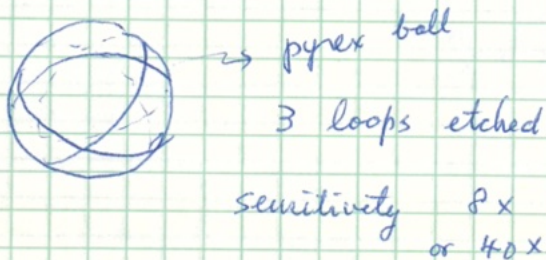 pyrex ball
3 loops etched
sensitivity 8x
or 40x